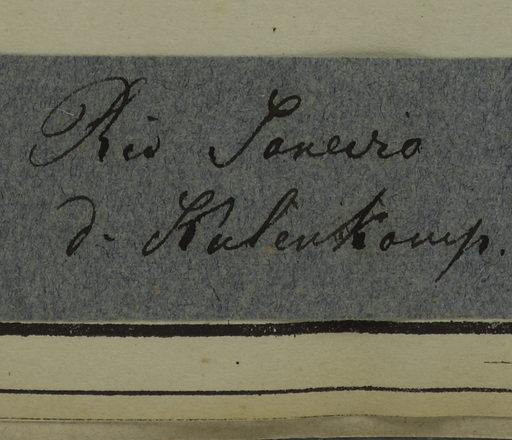 Rio Janeiro
d. Kalenkamp.